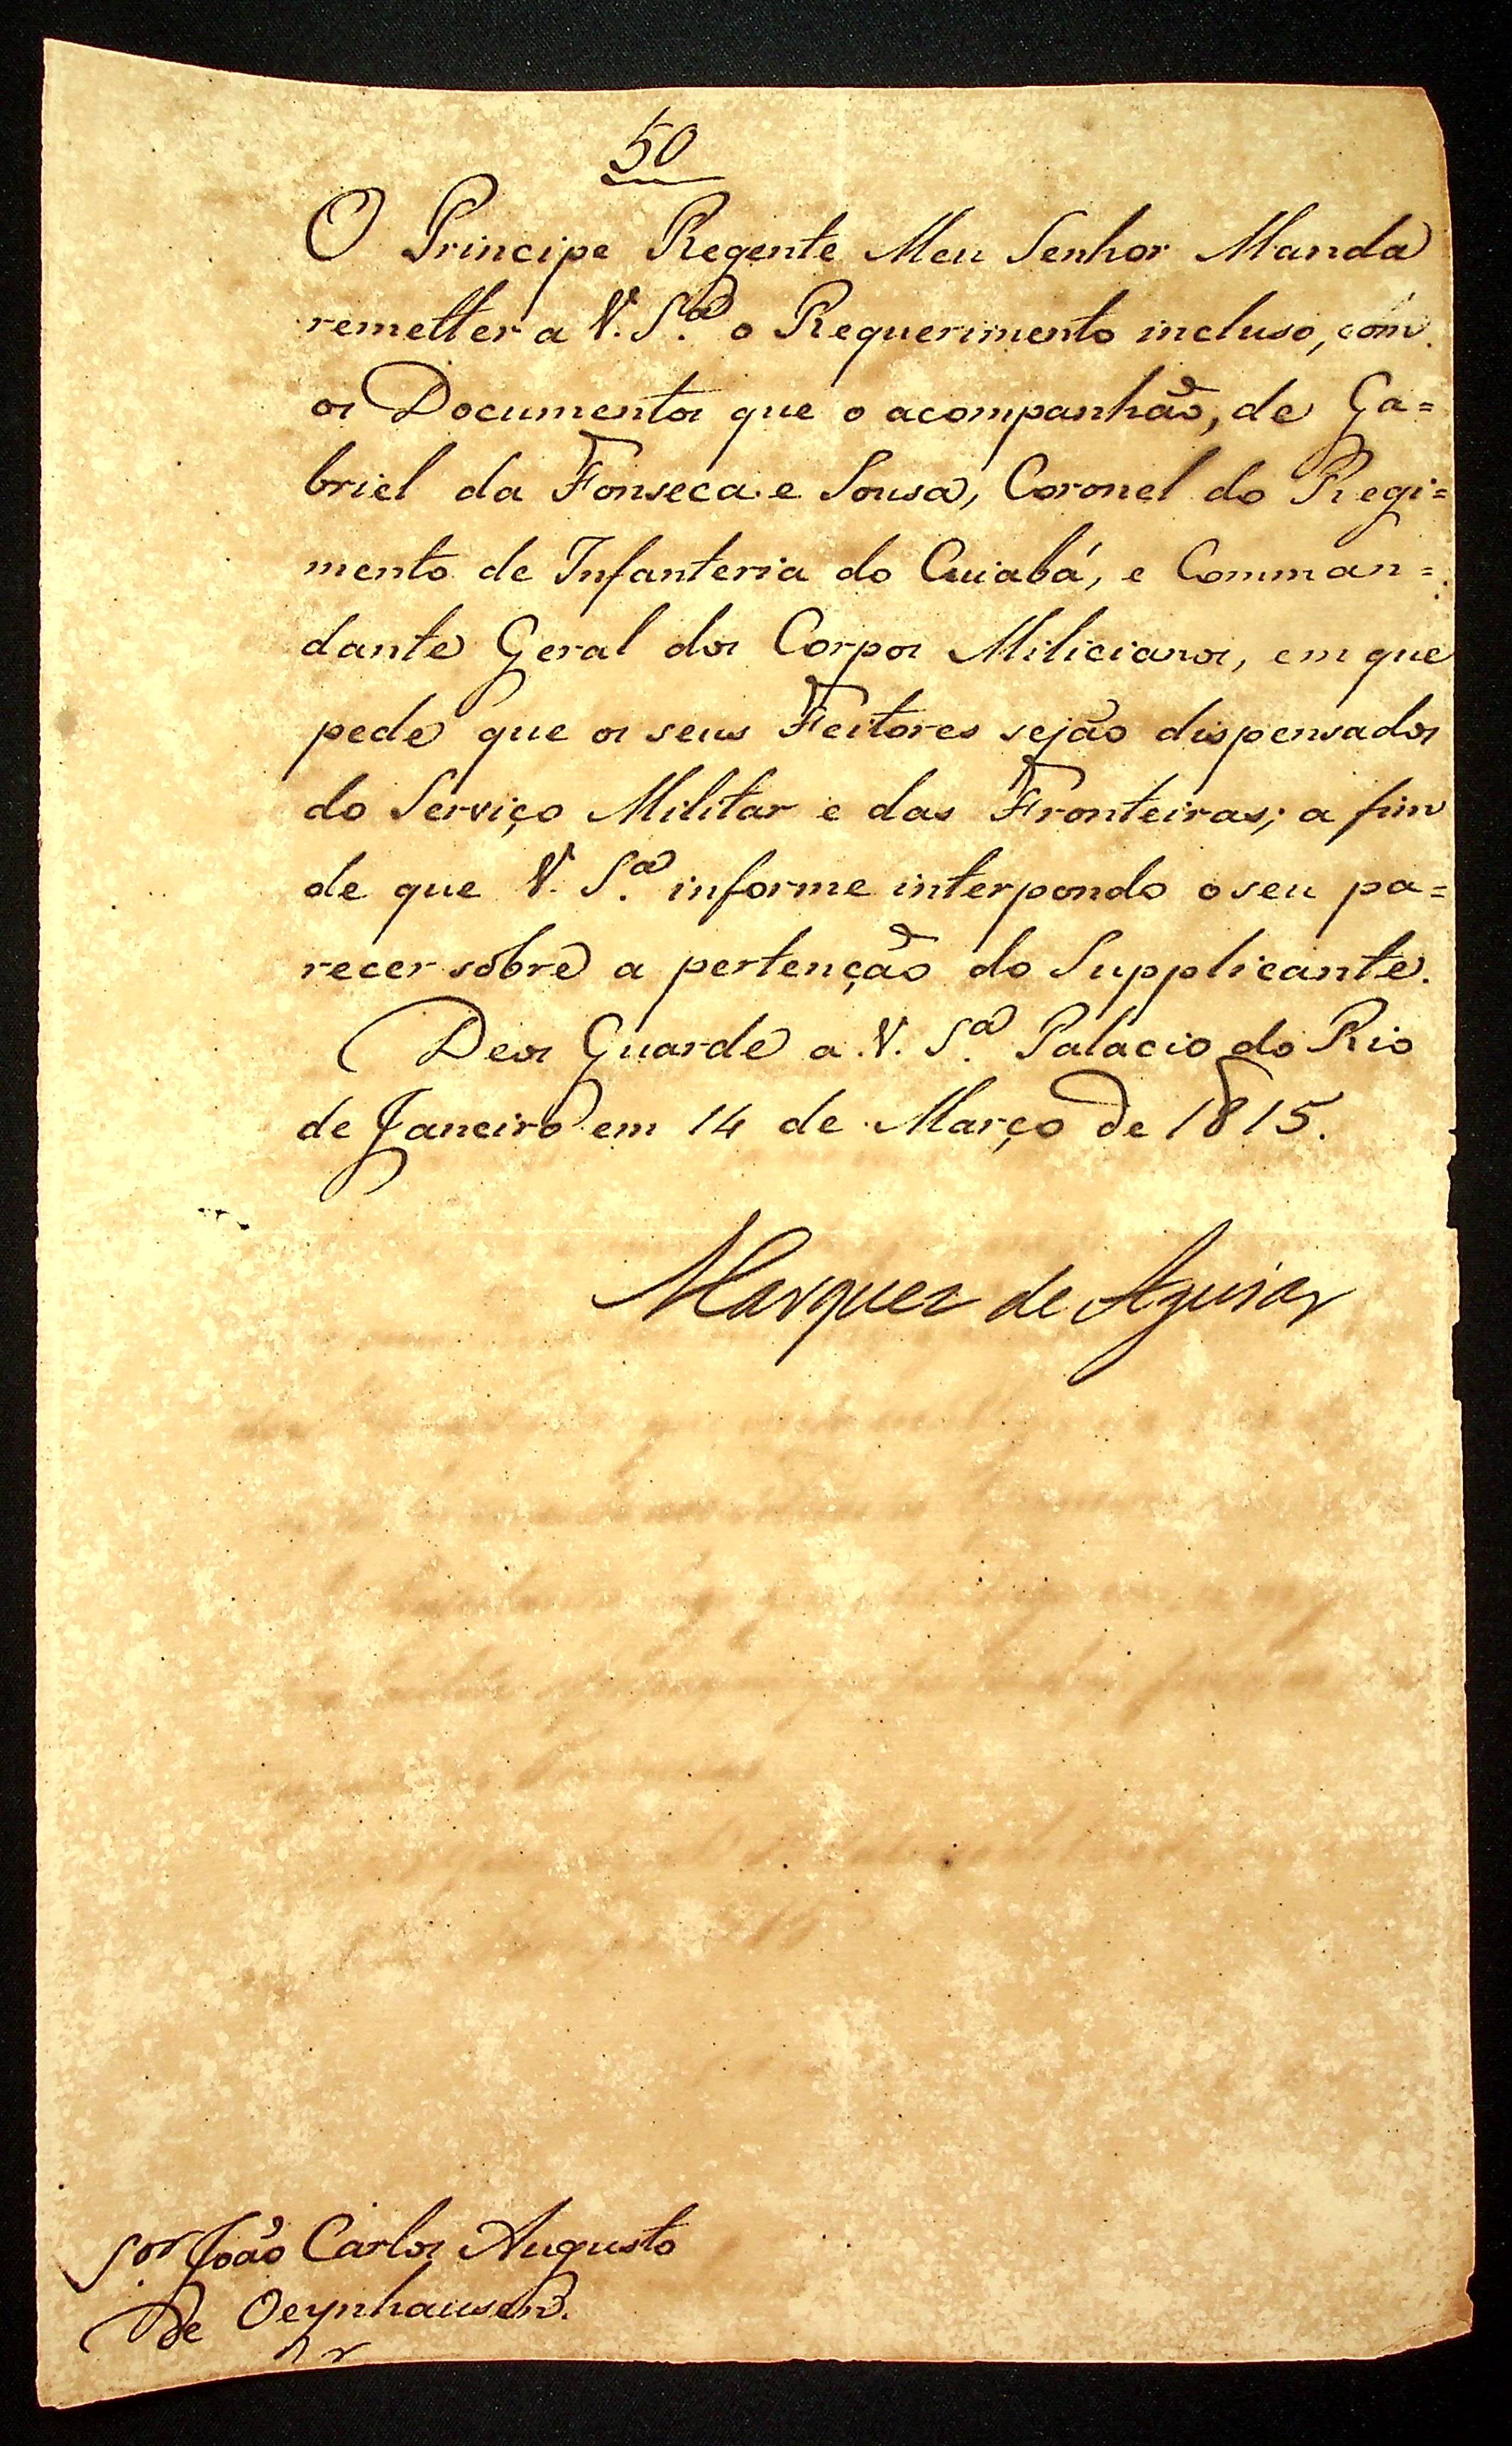 50
O Principe Regente Meu Senhor Manda
remetter a V. S.ª o Requerimento incluso, com
os Documentos que o acompanhão, de Ga=
briel da Fonseca e Sousa, Coronel do Regi=
mento de Infanteria do Cuiabá, e Comman=
dante Geral dos Corpos Milicianos, em que
pede que os seus Feitores sejão dispensados
do Serviço Militar e das Fronteiras; a fim
de que V. S.ª informe interpondo o seu pa=
recer sobre a pertenção do Supplicante.
Deos Guarde a V. S.ª Palacio do Rio
de Janeiro em 14 de Março de 1815.
Marquez de Aguiar
S.or João Carlos Augusto
de Oeynhausen.